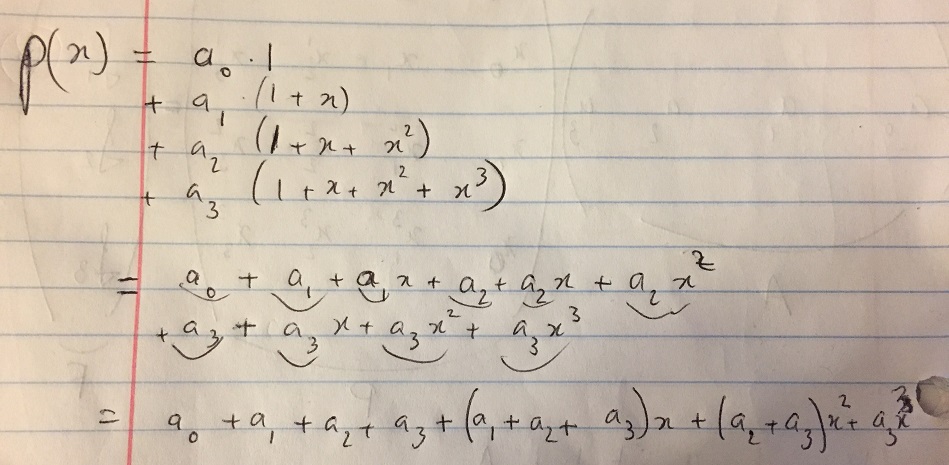 p(x) = a₀ · 1
+ a₁ · (1 + x)
+ a₂ (1 + x + x²)
+ a₃ (1 + x + x² + x³)
= a₀ + a₁ + a₁x + a₂ + a₂x + a₂x²
+ a₃ + a₃x + a₃x² + a₃x³
= a₀ + a₁ + a₂ + a₃ + (a₁ + a₂ + a₃)x + (a₂ + a₃)x² + a₃x³